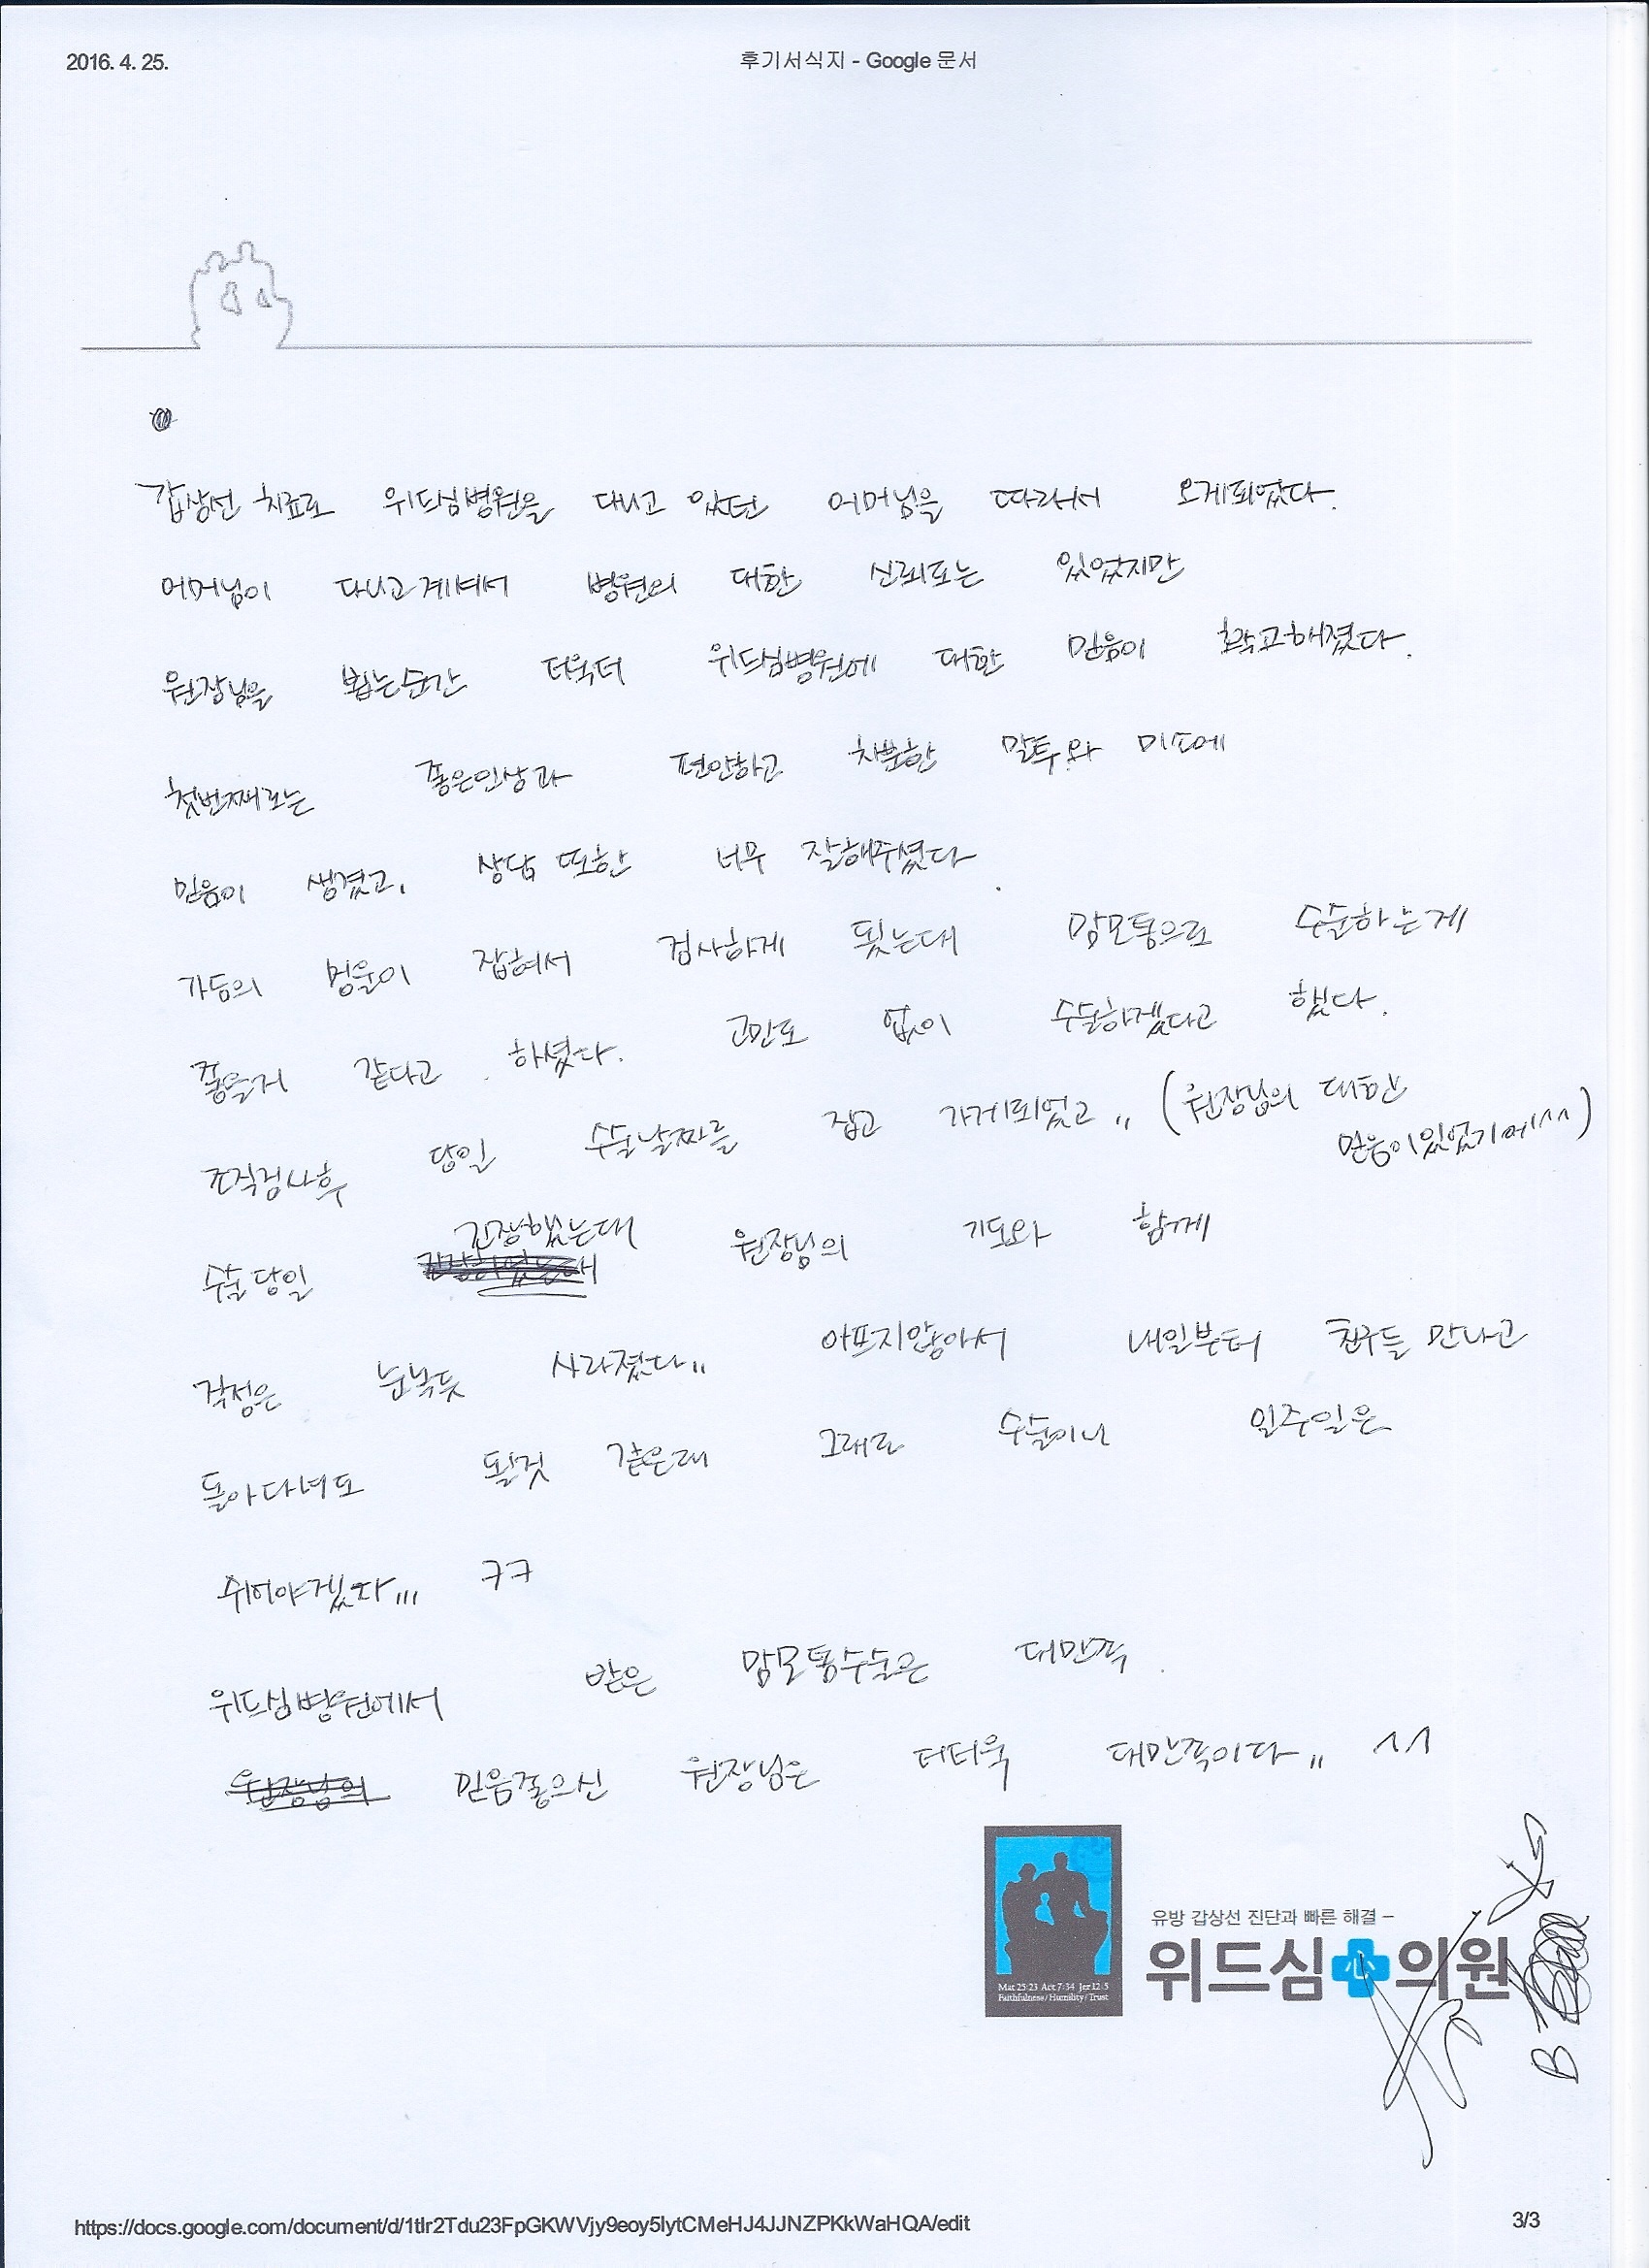 2016. 4. 25.
후기서식지 - Google 문서
갑상선 치료로 위드심병원을 다니고 있던 어머님을 따라서 오게되었다.
어머님이 다니고계셔서 병원의 대한 신뢰도는 있었지만
원장님을 뵙는순간 더욱더 위드심병원에 대한 믿음이 확고해졌다.
첫번째로는 좋은인상과 편안하고 차분한 말투와 미소에
믿음이 생겼고, 상담 또한 너무 잘해주셨다.
가슴의 멍울이 잡혀서 검사하게 됬는대 맘모톰으로 수술하는게
좋을거 같다고 하셨다. 고민도 없이 수술하겠다고 했다.
조직검사후 당일 수술날짜를 잡고 가게되었고,, (원장님의 대한
믿음이있었기에^^)
긴장했는대
수술당일 원장님의 기도와 함께
걱정은 눈녹듯 사라졌다,, 아프지않아서 내일부터 친구들 만나고
돌아다녀도 될것 같은데 그래도 수술이니 일주일은
쉬어야겠다,,, ㅋㅋ
위드심병원에서 받은 맘모톰수술은 대만족.
믿음좋으신 원장님은 더더욱 대만족이다,, ^^
Mat 25:23 Act 7:34 Jer 12:5
Faithfulness/Humility/Trust
유방 갑상선 진단과 빠른 해결 –
위드심心의원
B
https://docs.google.com/document/d/1tIr2Tdu23FpGKWVjy9eoy5lytCMeHJ4JJNZPKkWaHQA/edit
3/3